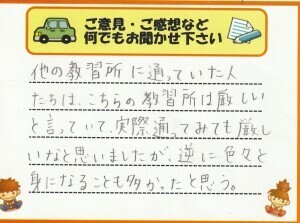 ご意見・ご感想など
何でもお聞かせ下さい
他の教習所に通っていた人
たちは、こちらの教習所は厳しい
と言っていて、実際通ってみても厳し
いなと思いましたが、逆に色々と
身になることも多かったと思う。